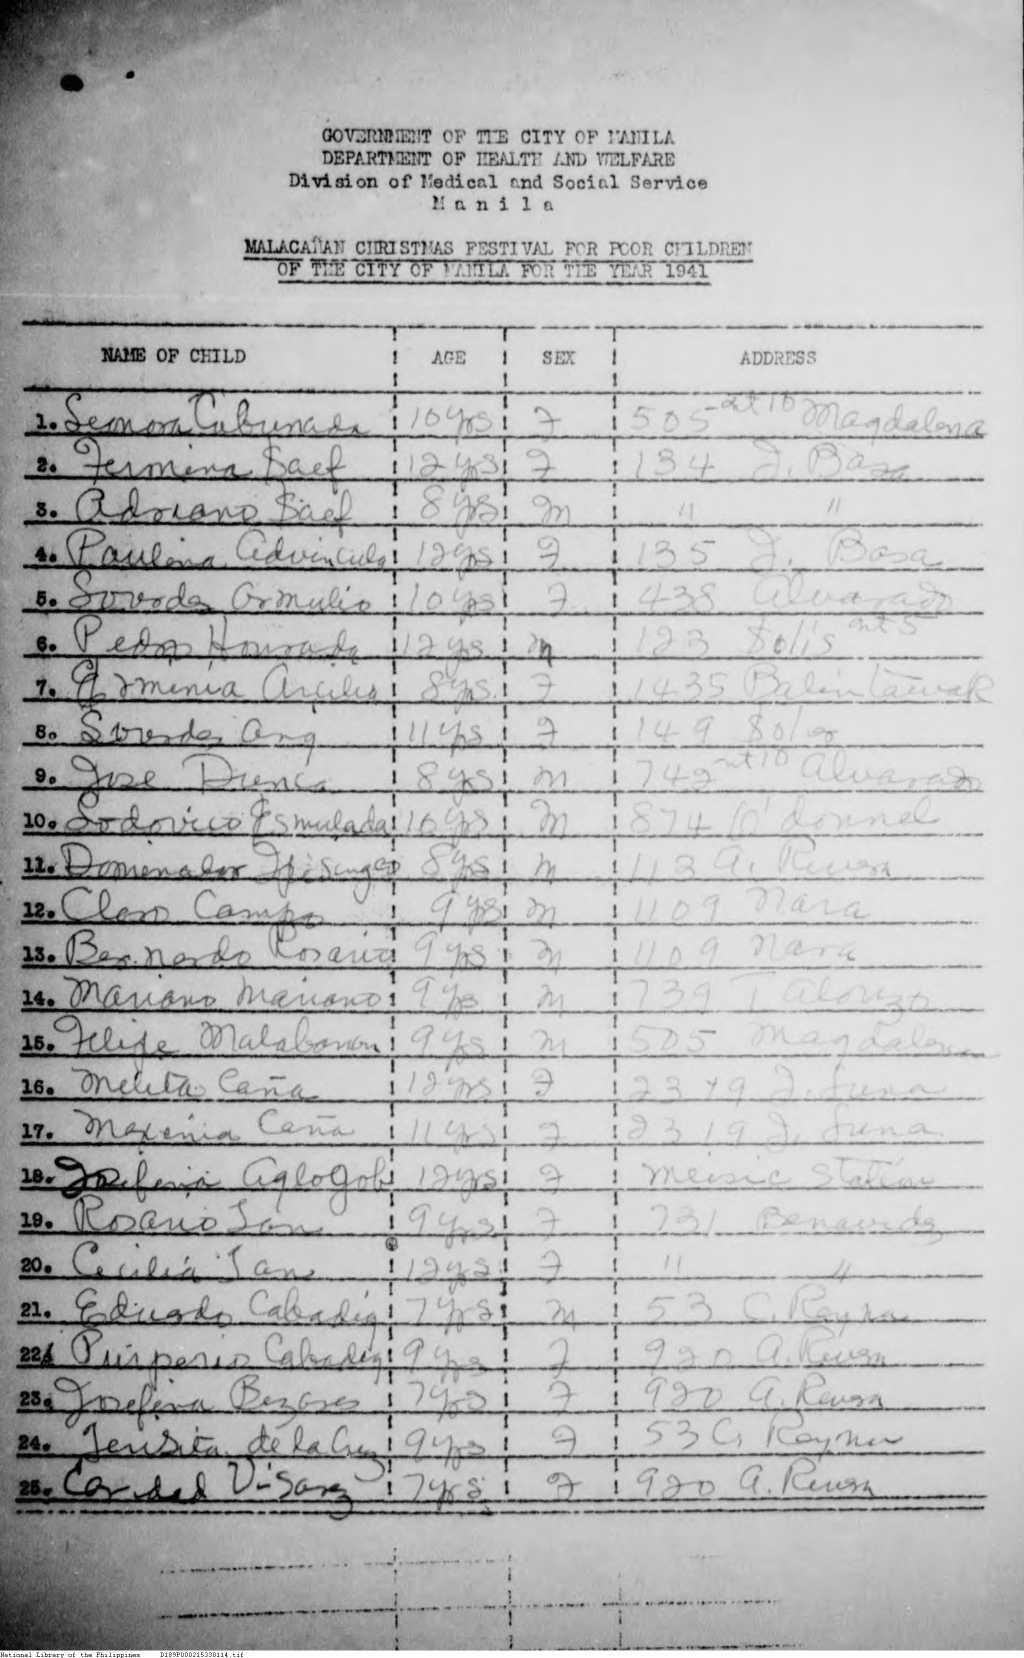 GOVERNMENT OF THE CITY OF MANILA
DEPARTMENT OF HEALTH AND WELFARE
Division of Medical and Social Service
M a n i l a
MALACAÑAN CHRISTMAS FESTIVAL FOR POOR CHILDREN
OF THE CITY OF MANILA FOR THE YEAR 1941
NAME OF CHILD AGE SEX ADDRESS
1. Leonora 10 yrs F 505 int 10 Magdalena
2. Fermina Saef 12 yrs F 134 J. Basa
3. Adriano Saef 8 yrs M " "
4. Paulina Advincula 12 yrs F 135 J. Basa
5. Lourdes Ormulio 10 yrs F 438 Alvarado
6. Pedro Honrada 12 yrs M 123 Solis int 5
7. Erminia Arcilio 8 yrs F 1435 Balintawak
8. Lourdes Ang 11 yrs F 149 Soler
9. Jose 8 yrs M 742 int 10 Alvarado
10. Lodovico Esmulada 10 yrs M 874 O'donnel
11. Domenador 8 yrs M 113 A. Rivera
12. Claro Campo 9 yrs M 1109 Nara
13. Bernardo Rosario 9 yrs M 1109 Nara
14. Mariano Mariano 9 yrs M 739 T Alonzo
15. Felipe Malabanan 9 yrs M 505 Magdalena
16. Melita Caña 12 yrs F 2319 J. Luna
17. Maxinia Caña 11 yrs F 2319 J. Luna
18. Josefina Aglogob 12 yrs F Meisic Station
19. Rosario Tan 9 yrs F 731 Benavidez
20. Cecilia Tan 12 yrs F " "
21. Eduardo Cabadig 7 yrs M 53 C. Reyna
22. Cabadig 9 yrs F 920 A. Rivera
23. Josefina Bezares 7 yrs F 920 A. Rivera
24. Tersita de la Cruz 9 yrs F 53 C. Reyna
25. Caridad 7 yrs F 920 A. Rivera
National Library of the Philippines D189P000215330114.tif